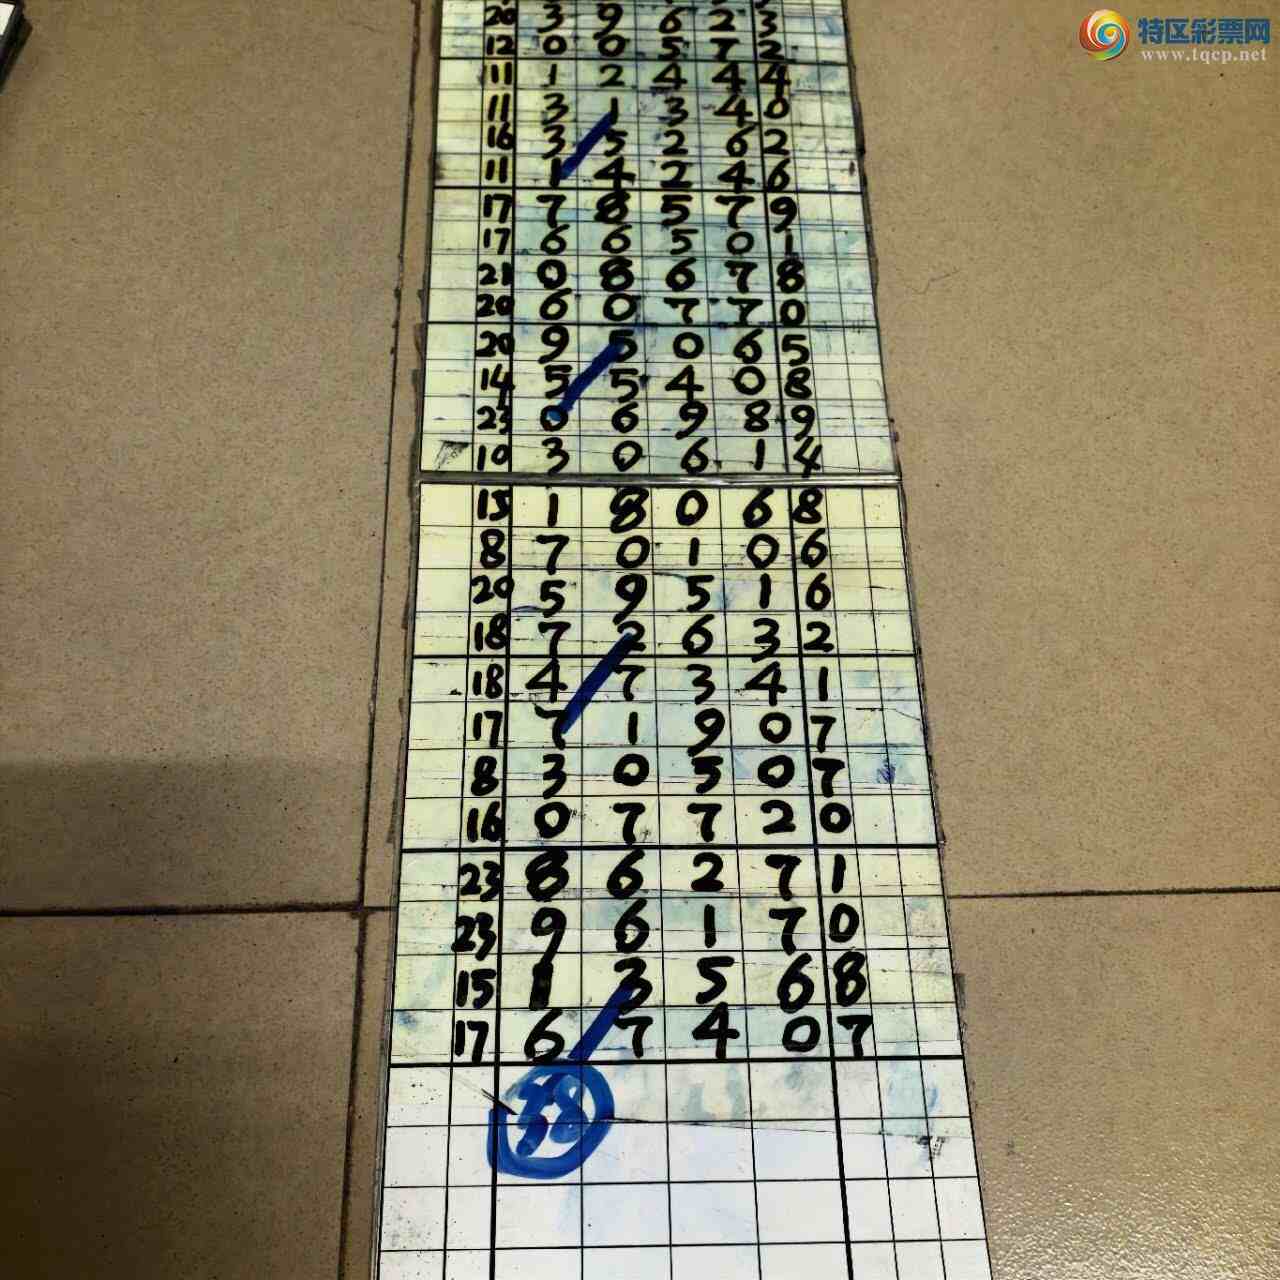 特区彩票网
www.tqcp.net
20 3 9 6 2 3
12 0 0 5 7 2
11 1 2 4 4 4
11 3 1 3 4 0
16 3 5 2 6 2
11 1 4 2 4 6
17 7 8 5 7 9
17 6 6 5 0 1
21 0 8 6 7 8
20 6 0 7 7 0
20 9 5 0 6 5
14 5 5 4 0 8
23 0 6 9 8 9
10 3 0 6 1 4
15 1 8 0 6 8
8 7 0 1 0 6
20 5 9 5 1 6
18 7 2 6 3 2
18 4 7 3 4 1
17 7 1 9 0 7
8 3 0 5 0 7
16 0 7 7 2 0
23 8 6 2 7 1
23 9 6 1 7 0
15 1 3 5 6 8
17 6 7 4 0 7